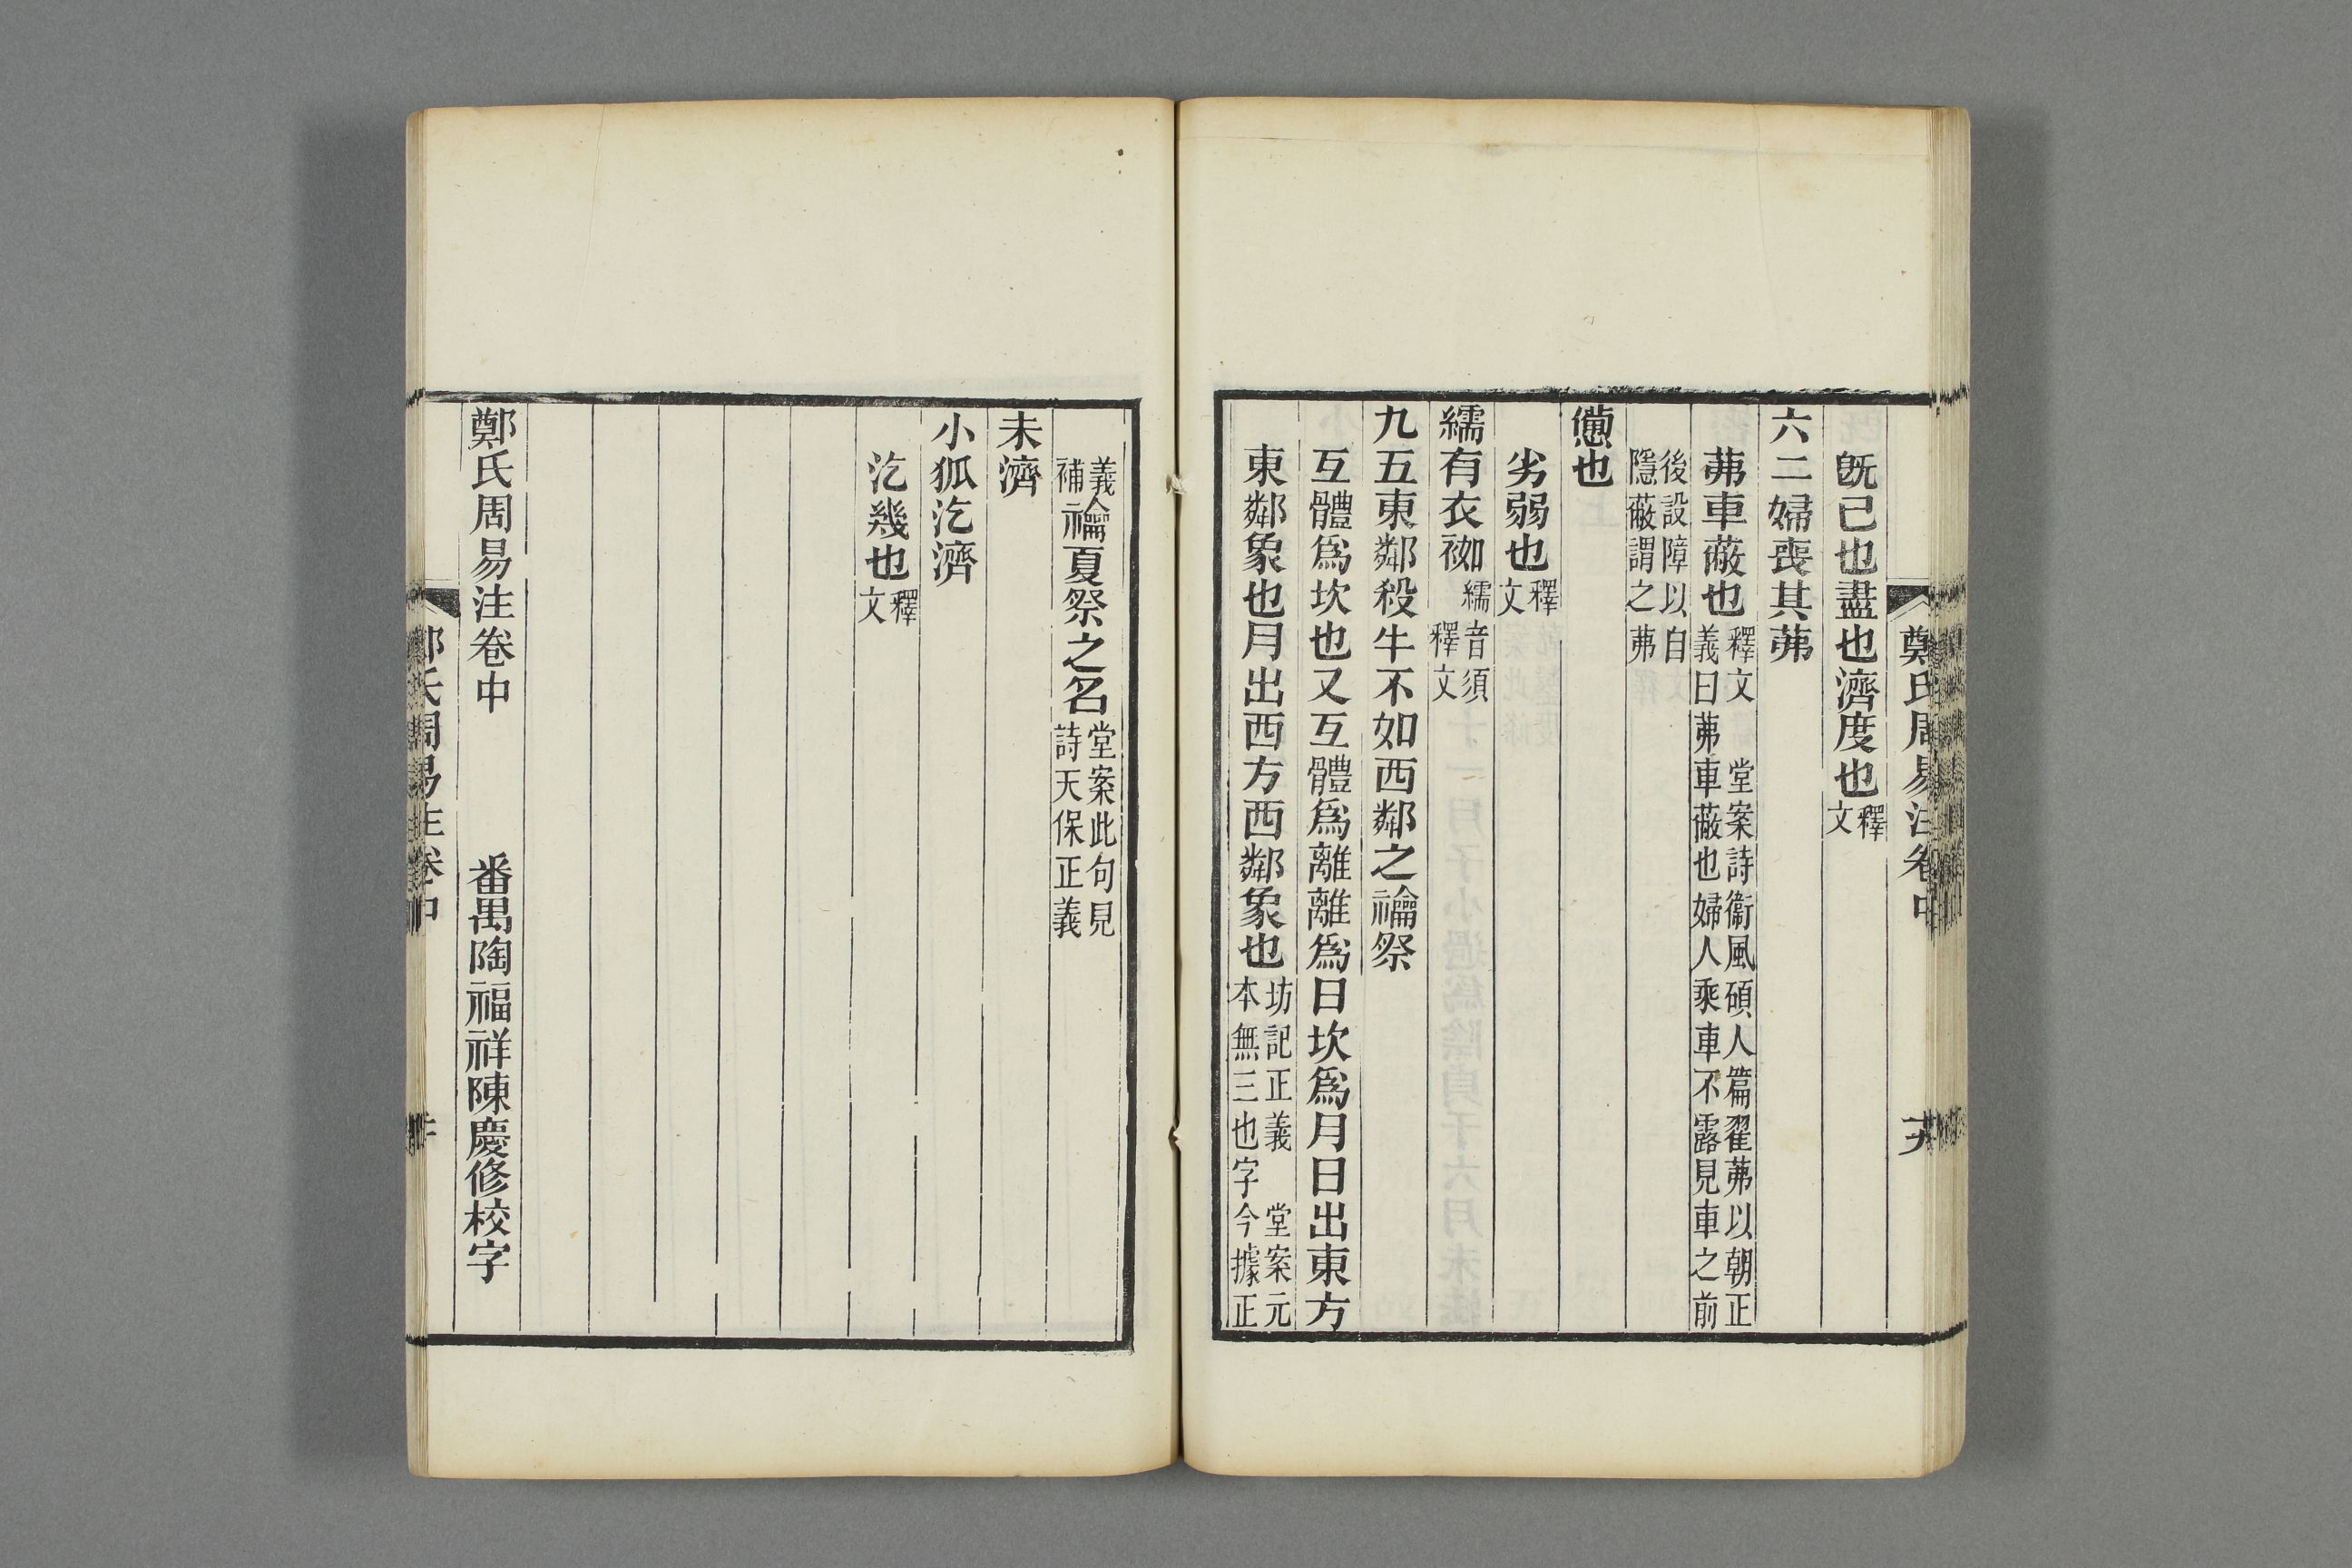 鄭氏周易注卷中
既已也盡也濟度也釋文
六二婦喪其茀
茀車蔽也釋文 堂案詩衞風碩人篇翟茀以朝正義曰茀車蔽也婦人乘車不露見車之前
後設障以自隱蔽謂之茀
憊也
劣弱也釋文
繻有衣袽繻音須釋文
九五東鄰殺牛不如西鄰之禴祭
互體爲坎也又互體爲離離爲日坎爲月日出東方
東鄰象也月出西方西鄰象也坊記正義 堂案元本無三也字今據正
義補禴夏祭之名堂案此句見詩天保正義
未濟
小狐汔濟
汔幾也釋文
鄭氏周易注卷中 番禺陶福祥陳慶修校字
氏周易注卷中